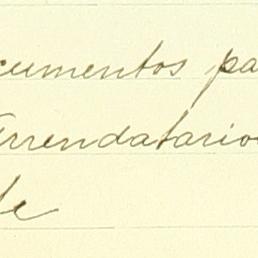 cumentos pa
Arrendatario
de